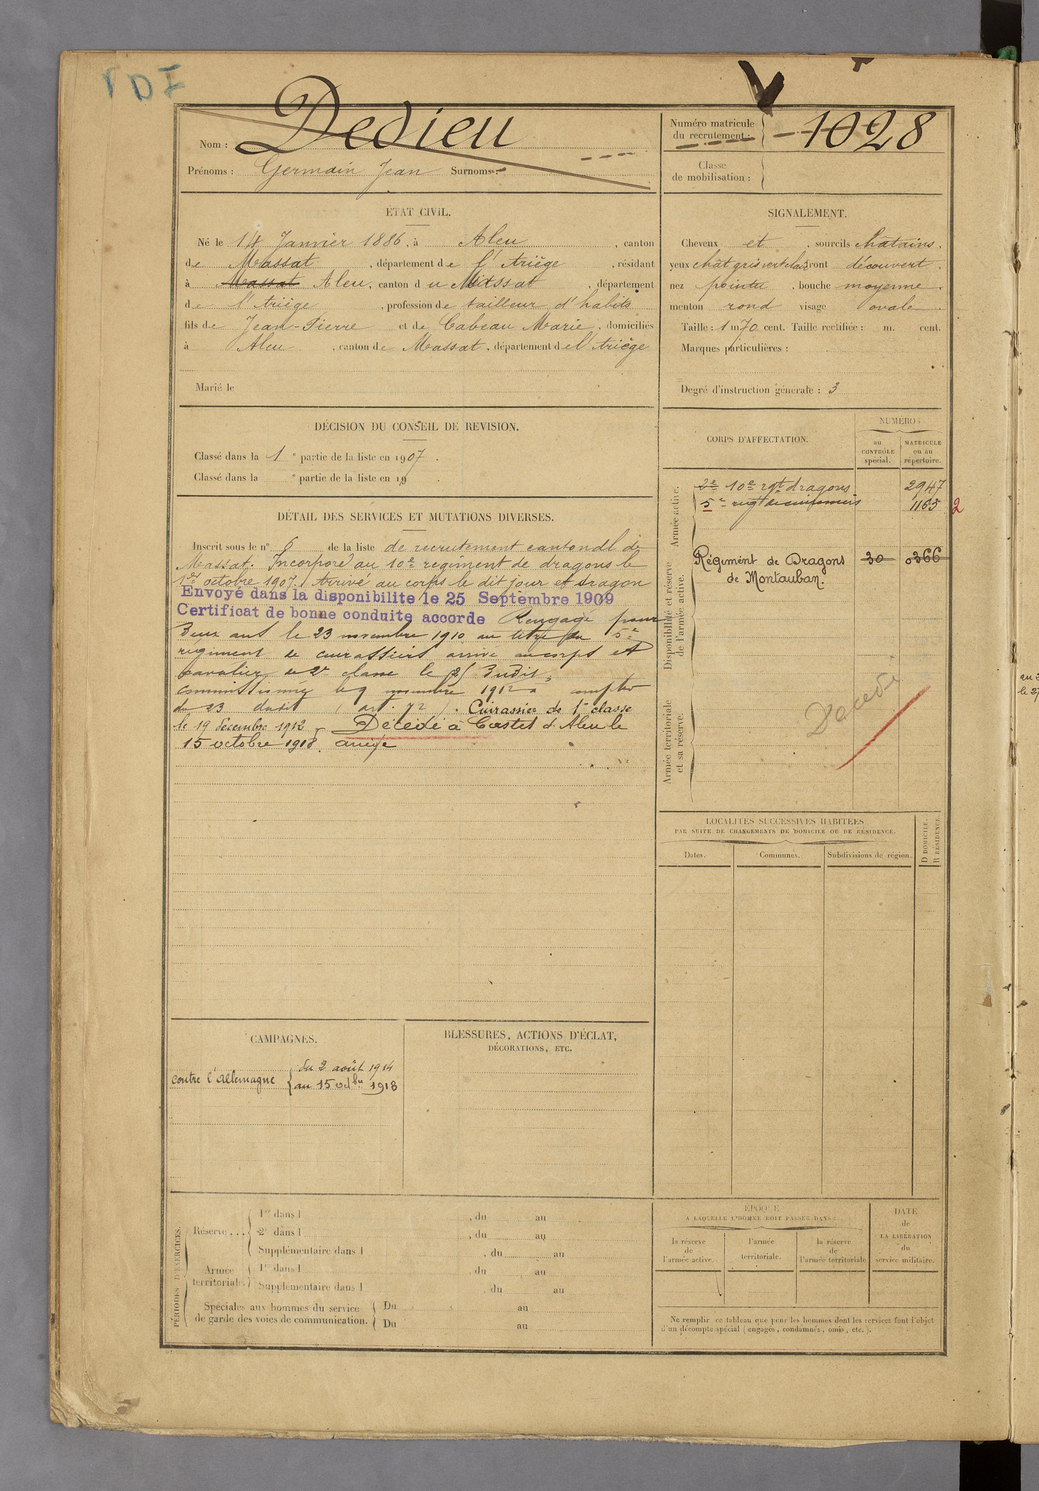 Nom : Dedieu
Prénoms : Germain Jean Surnoms :
Numéro matricule
du recrutement : 1028
Classe
de mobilisation :
ÉTAT CIVIL.
Né le 14 Janvier 1886, à Aleu, canton
de Massat, département de l'Ariège, résidant
à Massat Aleu, canton du Massat, département
de l'Ariège, profession de tailleur d'habits
fils de Jean-Pierre et de Cabeau Marie, domiciliés
à Aleu, canton de Massat, département de l'Ariège
Marié le
SIGNALEMENT.
Cheveux et, sourcils chatains,
yeux chât gris verdatres front découvert,
nez pointu, bouche moyenne,
menton rond visage ovale
Taille : 1 m 70 cent. Taille rectifiée : m. cent.
Marques particulières :
Degré d'instruction générale : 3
DÉCISION DU CONSEIL DE REVISION.
Classé dans la 1 e partie de la liste en 1907.
Classé dans la e partie de la liste en 19
DÉTAIL DES SERVICES ET MUTATIONS DIVERSES.
Inscrit sous le n° 6 de la liste de recrutement cantonal de
Massat. Incorporé au 10e regiment de dragons le
1er octobre 1907. Arrivé au corps le dit jour et dragon
Envoyé dans la disponibilite le 25 Septembre 1909
Certificat de bonne conduite accorde Rengagé pour
Deux ans le 23 novembre 1910 au titre du 5e
regiment de cuirassiers arrivé au corps et
cavalier de 2e classe le dit
commissionné le 9 novembre 1912 a compter
du 23 dudit (art. 72). Cuirassier de 1e classe
le 19 Décembre 1912 - Décédé à Castet d'Aleu le
15 octobre 1918. ariege
CORPS D'AFFECTATION.
NUMÉRO :
au
CONTRÔLE
spécial.
MATRICULE
ou au
répertoire.
Armée active.
2e 10e rgt dragons 2947
5e regt de cuirassiers 1163 2
Disponibilité et réserve
de l'armée active.
Régiment de Dragons 30 0366
de Montauban.
Armée territoriale
et sa réserve.
Décédé
LOCALITÉS SUCCESSIVES HABITÉES
PAR SUITE DE CHANGEMENTS DE DOMICILE OU DE RÉSIDENCE.
Dates.
Communes.
Subdivisions de région.
D DOMICILE.
R RÉSIDENCE.
CAMPAGNES.
contre l'allemagne
du 2 août 1914
au 15 octbre 1918
BLESSURES, ACTIONS D'ÉCLAT,
DÉCORATIONS, ETC.
PÉRIODES D'EXERCICES.
Réserve...
1re dans l , du au
2e dans l , du au
Supplémentaire dans l , du au
Armée
territoriale.
1re dans l , du au
Supplémentaire dans l , du au
Spéciales aux hommes du service
de garde des voies de communication.
Du au
Du au
ÉPOQUE
A LAQUELLE L'HOMME DOIT PASSER DANS :
la réserve
de
l'armée active.
l'armée
territoriale.
la réserve
de
l'armée territoriale
DATE
de
LA LIBÉRATION
du
service militaire.
Ne remplir ce tableau que pour les hommes dont les services font l'objet
d'un décompte spécial (engagés, condamnés, omis, etc.).